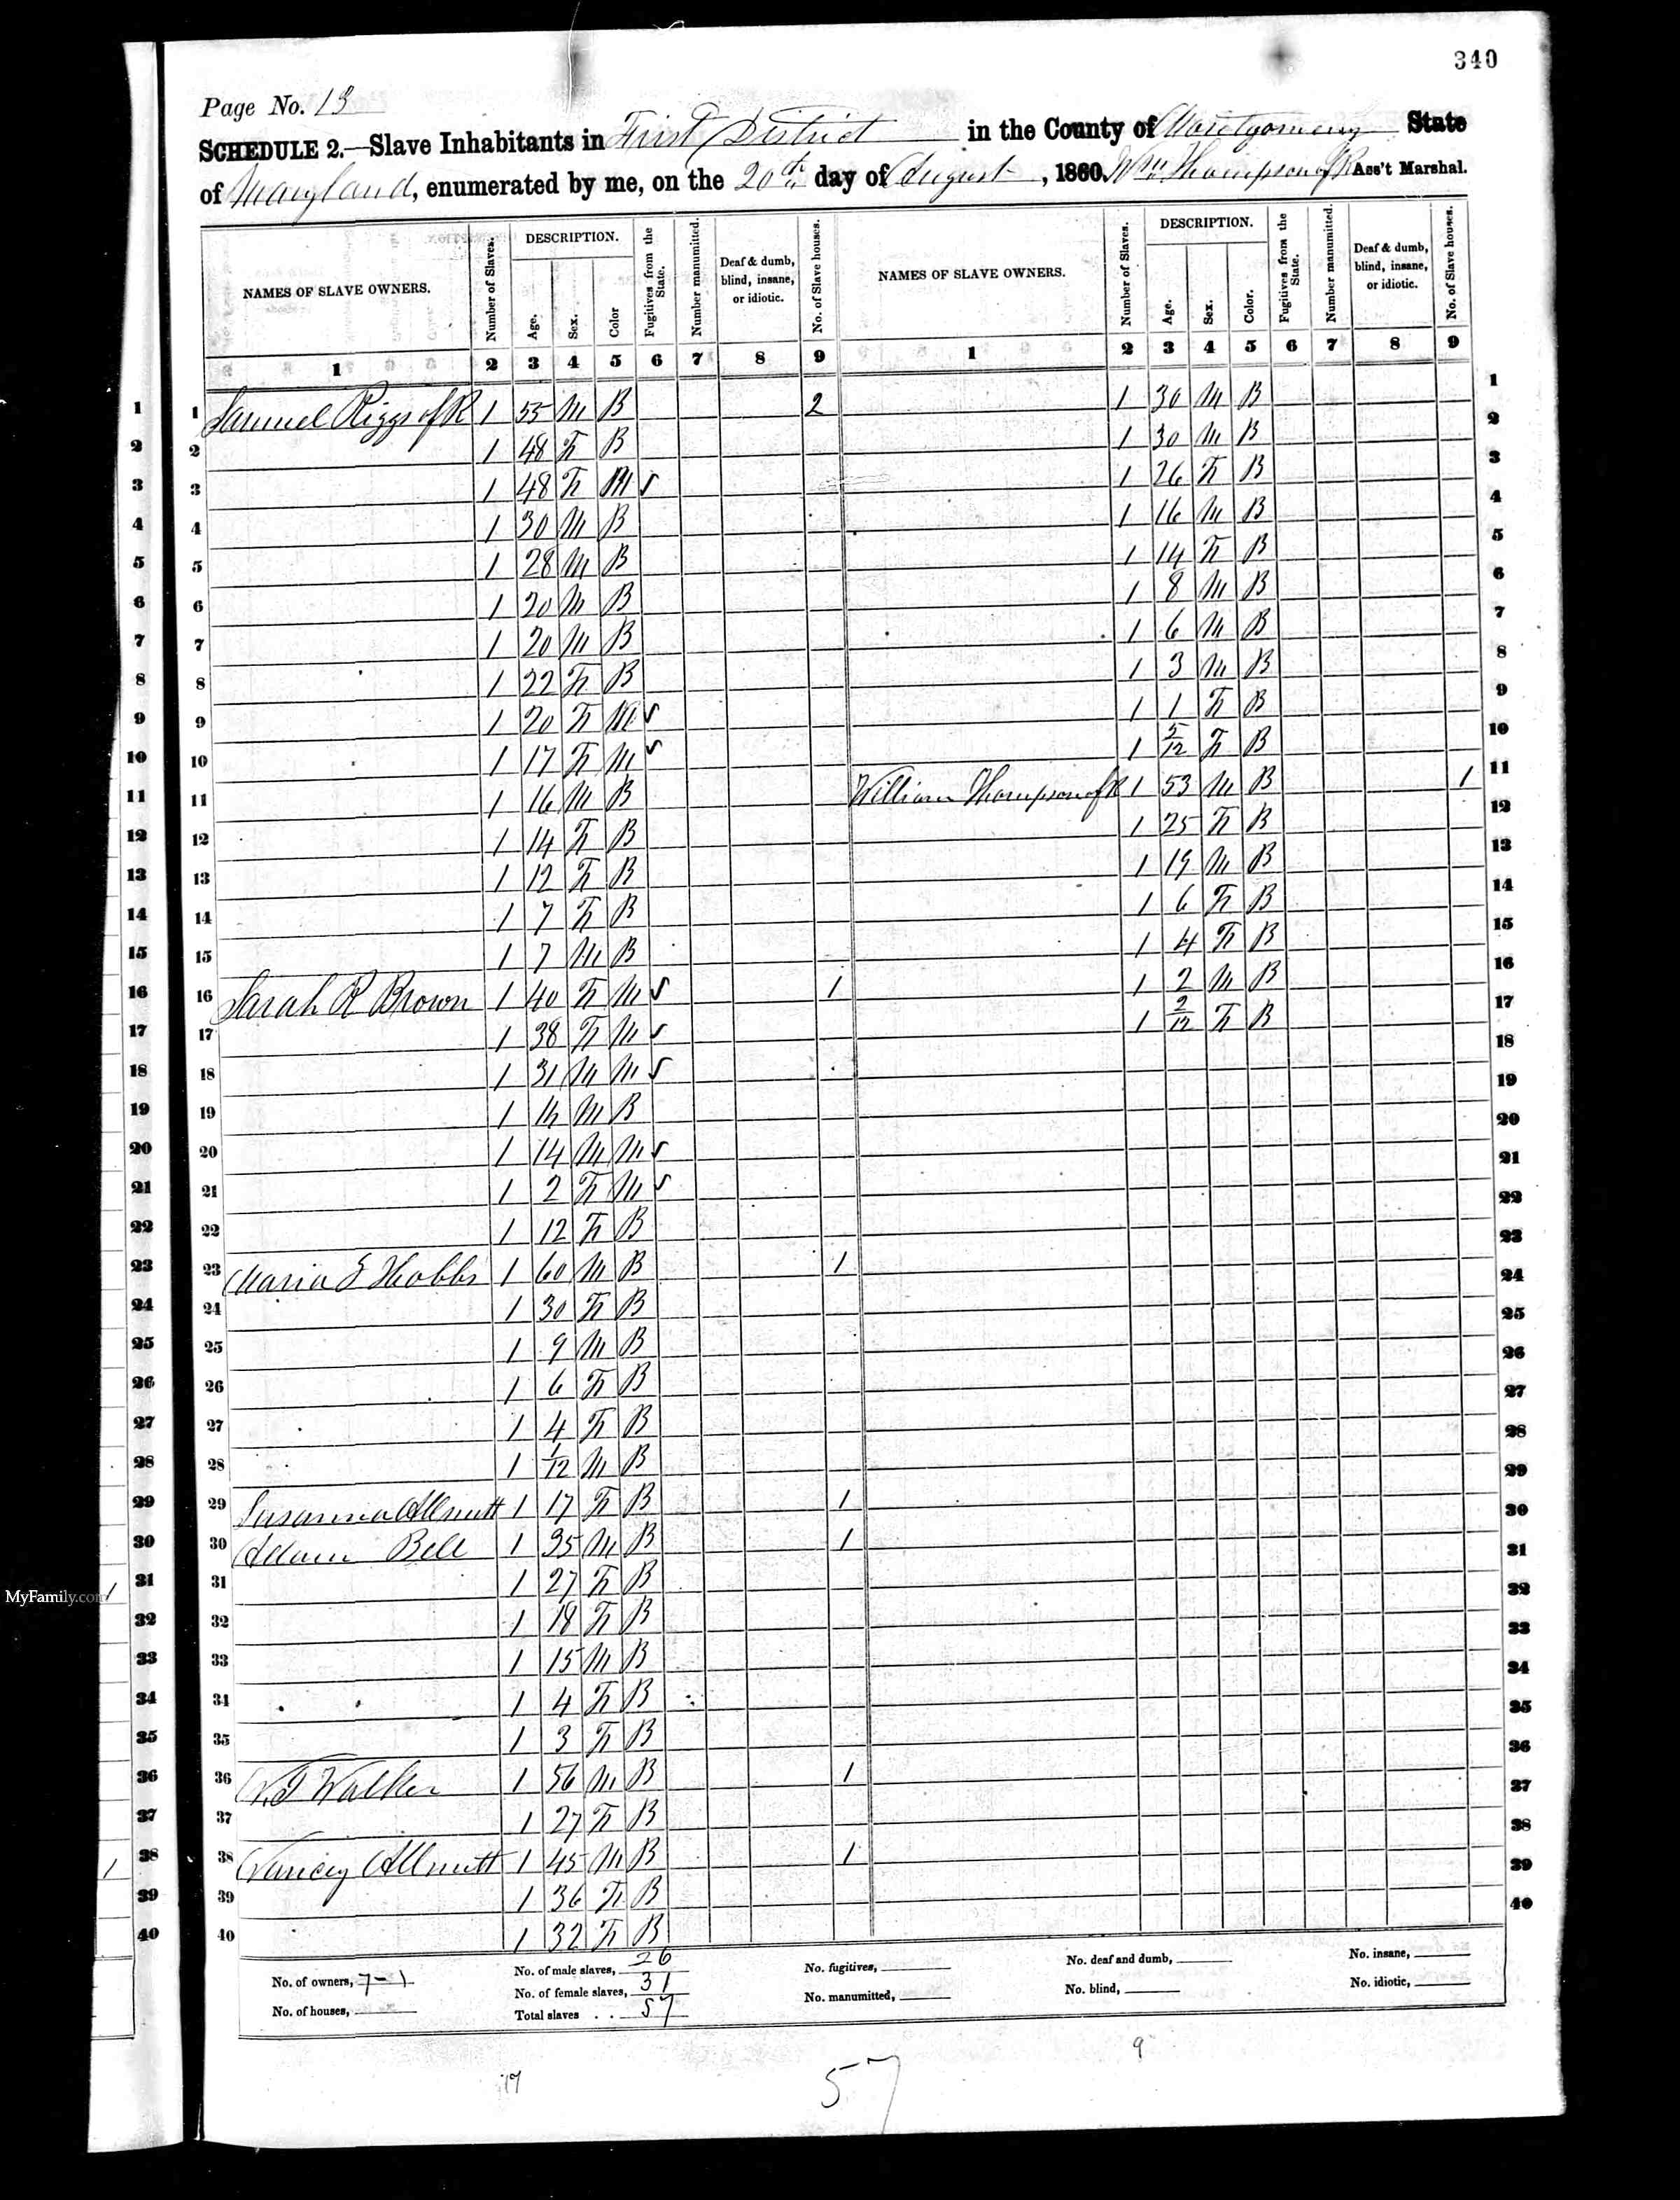 340
Page No. 13
SCHEDULE 2.—Slave Inhabitants in First District in the County of Montgomery State
of Maryland, enumerated by me, on the 20th day of August, 1860. Wm Thompson of R Ass't Marshal.
NAMES OF SLAVE OWNERS. Number of Slaves. DESCRIPTION. Age. Sex. Color Fugitives from the State. Number manumitted. Deaf & dumb, blind, insane, or idiotic. No. of Slave houses. NAMES OF SLAVE OWNERS. Number of Slaves. DESCRIPTION. Age. Sex. Color. Fugitives from the State. Number manumitted. Deaf & dumb, blind, insane, or idiotic. No. of Slave houses.
1 2 3 4 5 6 7 8 9 1 2 3 4 5 6 7 8 9
1 1 Samuel Riggs of R 1 55 M B 2 1 30 M B 1
2 2 1 48 F B 1 30 M B 2
3 3 1 48 F M 1 26 F B 3
4 4 1 30 M B 1 16 M B 4
5 5 1 28 M B 1 14 F B 5
6 6 1 20 M B 1 8 M B 6
7 7 1 20 M B 1 6 M B 7
8 8 1 22 F B 1 3 M B 8
9 9 1 20 F M 1 1 F B 9
10 10 1 17 F M 1 5/12 F B 10
11 11 1 16 M B William Thompson of R 1 53 M B 1 11
12 12 1 14 F B 1 25 F B 12
13 13 1 12 F B 1 19 M B 13
14 14 1 7 F B 1 6 F B 14
15 15 1 7 M B 1 4 F B 15
16 16 Sarah R Brown 1 40 F M 1 1 2 M B 16
17 17 1 38 F M 1 2/12 F B 17
18 18 1 31 M M 18
19 19 1 16 M B 19
20 20 1 14 M M 20
21 21 1 2 F M 21
22 22 1 12 F B 22
23 23 Maria E Hobbs 1 60 M B 1 23
24 24 1 30 F B 24
25 25 1 9 M B 25
26 26 1 6 F B 26
27 27 1 4 F B 27
28 28 1 1/12 M B 28
29 29 Susanna Allnutt 1 17 F B 1 29
30 30 Adam Bell 1 35 M B 1 30
31 31 1 27 F B 31
MyFamily.com
32 32 1 18 F B 32
33 33 1 15 M B 33
34 34 1 4 F B 34
35 35 1 3 F B 35
36 36 Walker 1 56 M B 1 36
37 37 1 27 F B 37
38 38 Nancy Allnutt 1 45 M B 1 38
39 39 1 36 F B 39
40 40 1 32 F B 40
No. of owners, 7-1 No. of male slaves, 26 No. fugitives, No. deaf and dumb, No. insane,
No. of houses, No. of female slaves, 31 No. manumitted, No. blind, No. idiotic,
Total slaves . . 57
17 57 9